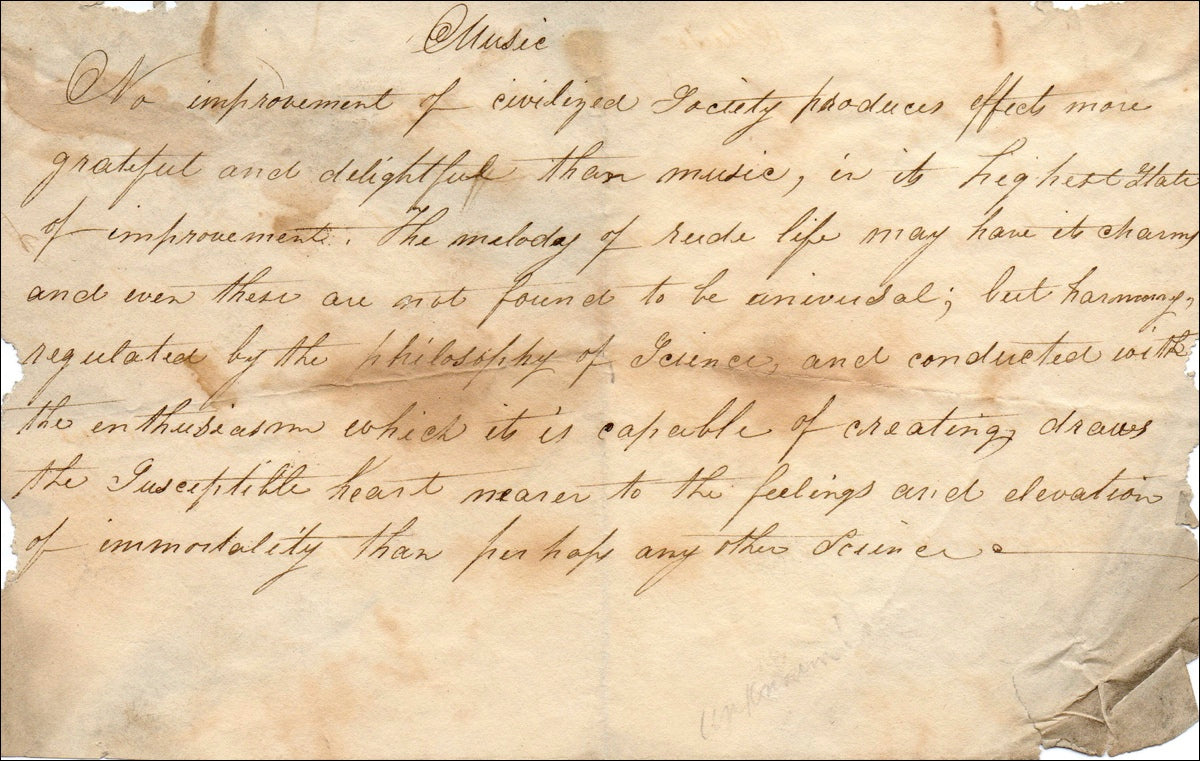 Music
No improvement of civilized Society produces effects more
grateful and delightful than music, in its highest State
of improvement. The melody of rude life may have its charms
and even these are not found to be universal; but harmony,
regulated by the philosophy of Science, and conducted with
the enthusiasm which it is capable of creating, draws
the Susceptible heart nearer to the feelings and elevation
of immortality than perhaps any other Science